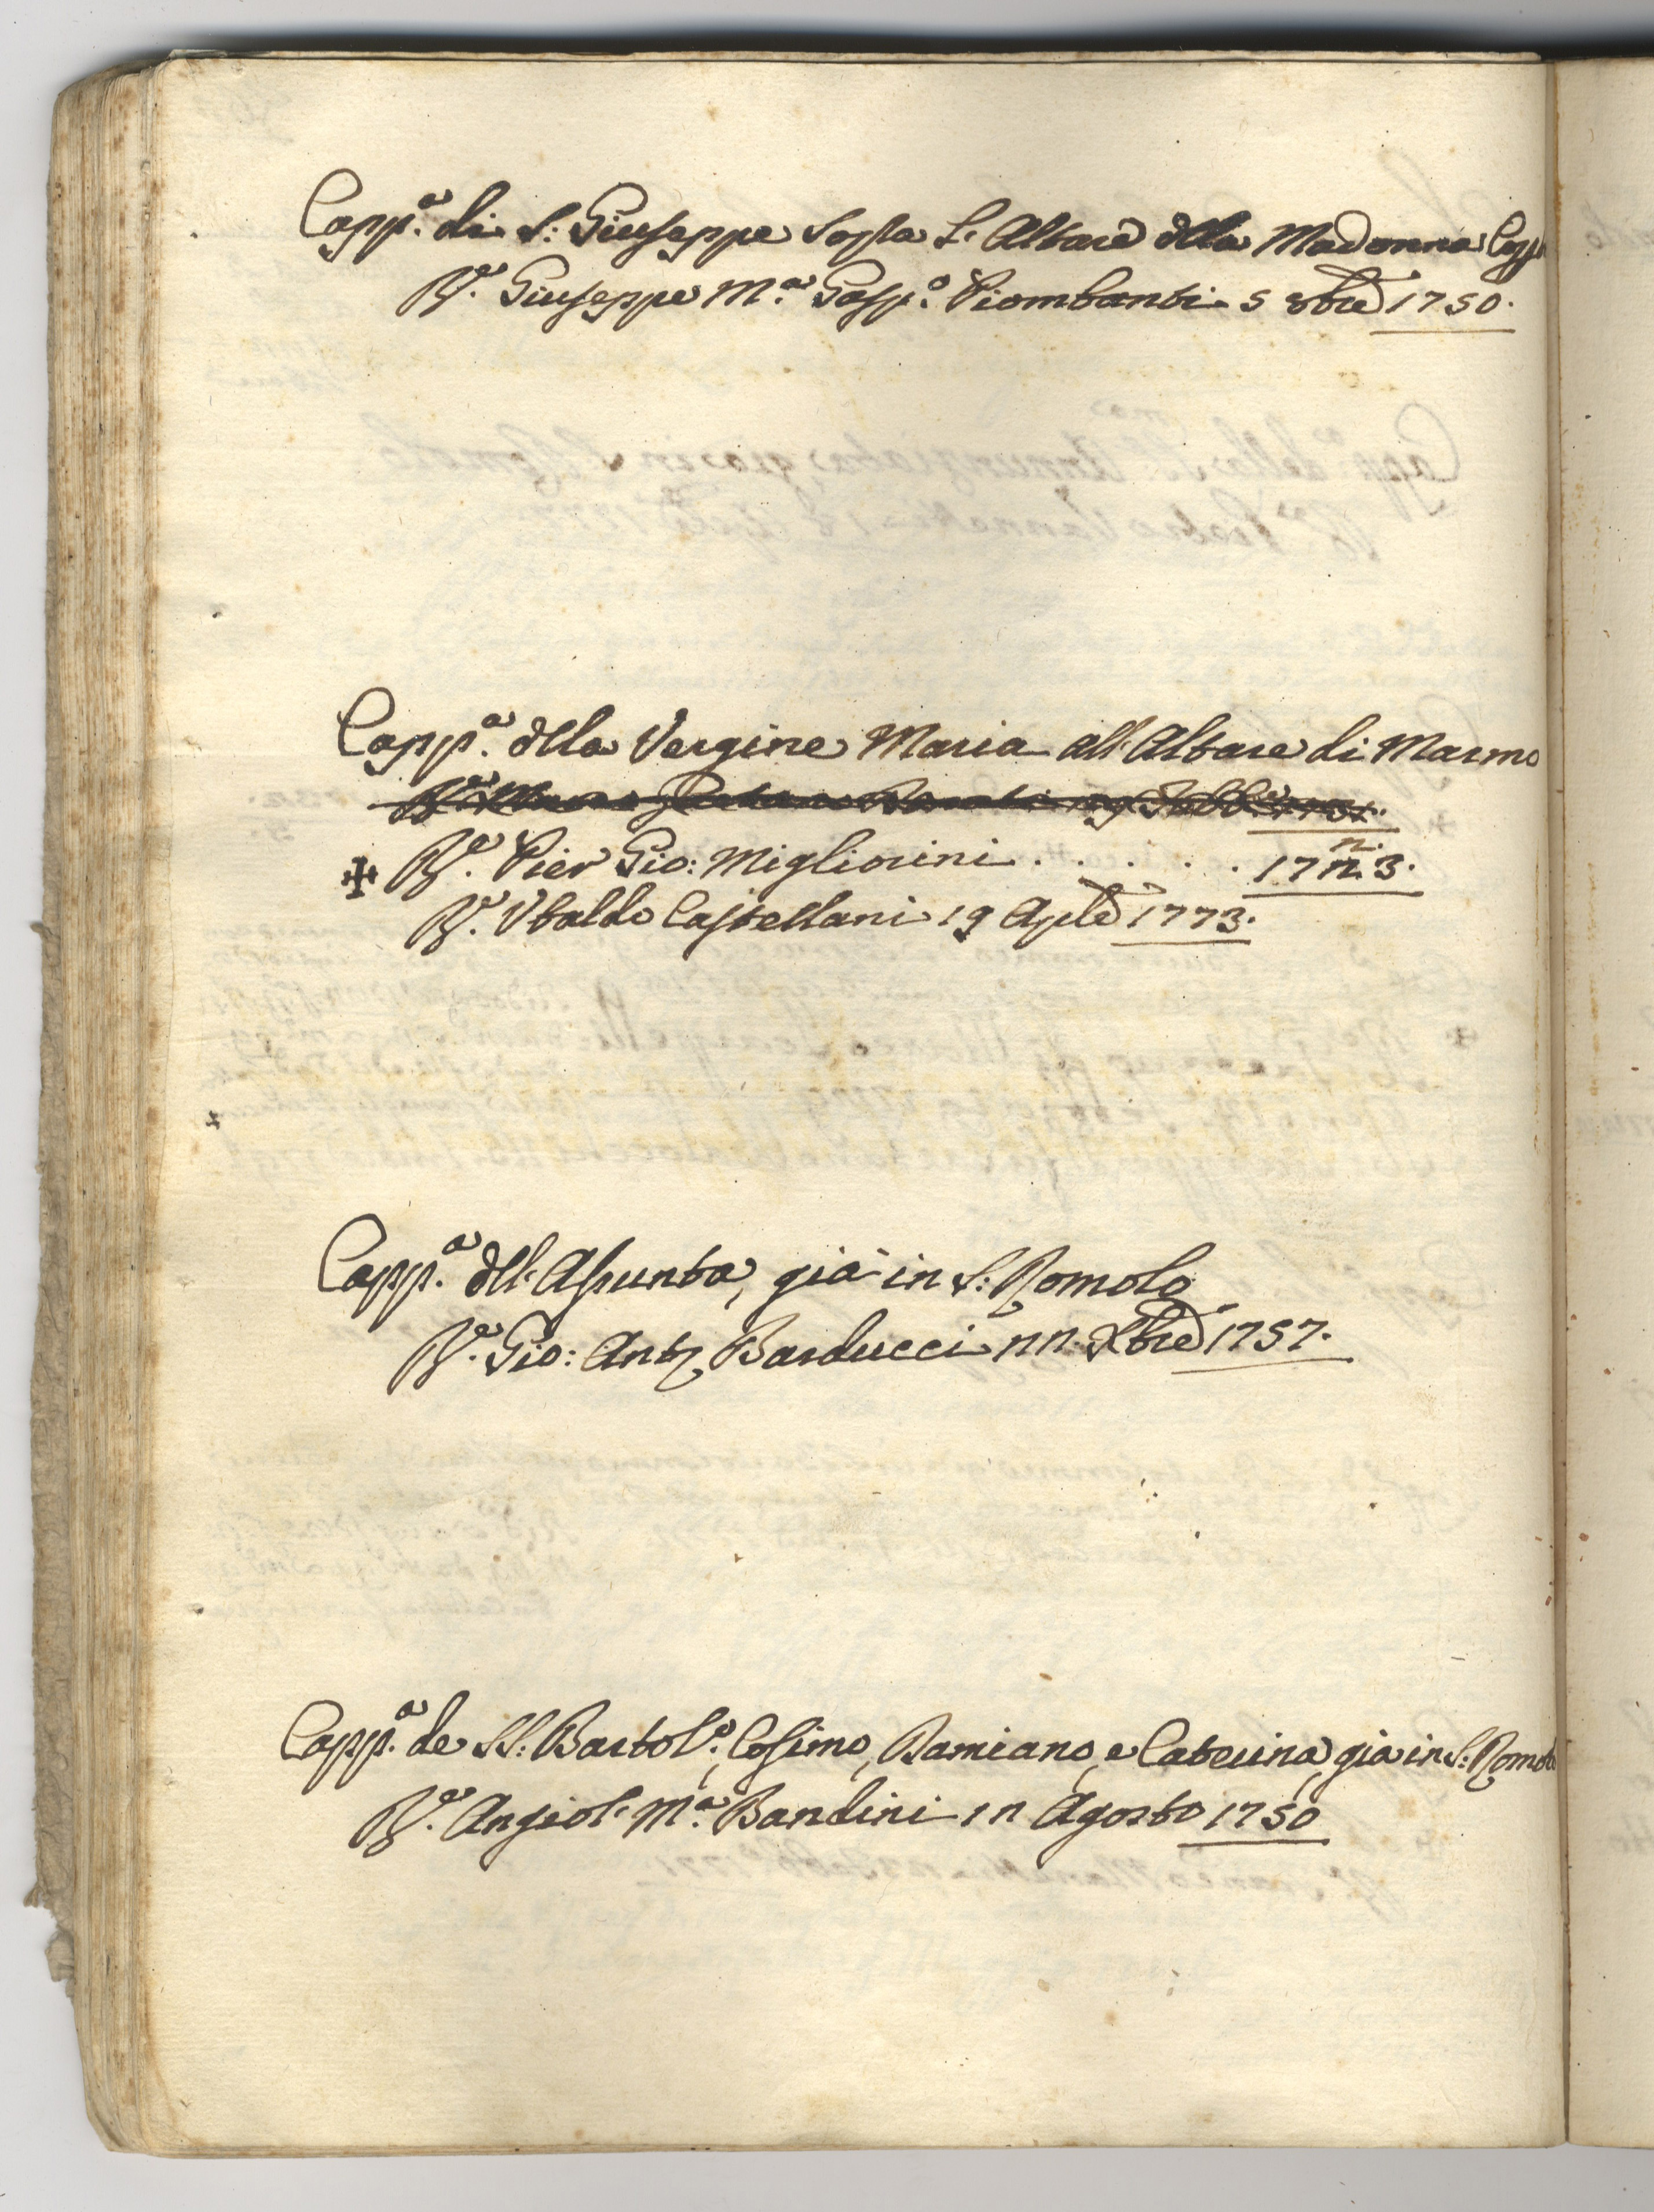 Capp.ª di S: Giuseppe sopra l'Altare della Madonna Capp
R.ᵉ Giuseppe M.ª Gasp.º Piombanti 5 8bre 1750.
Capp.ª della Vergine Maria all'Altare di Marmo
R.ᵉ Pier Gio: Migliorini . . . . . 1723.
R.ᵉ Ubaldo Castellani 19 Aprle 1773.
Capp.ª dell'Assunta, già in S: Romolo
R.ᵉ Gio: Ant.º Barducci 22 Xbre 1757.
Capp.ª de SS: Bartol.º, Cosimo, Damiano, e Caterina, già in S: Romolo
R.ᵉ Angiol' M.ª Bandini 12 Agosto 1750